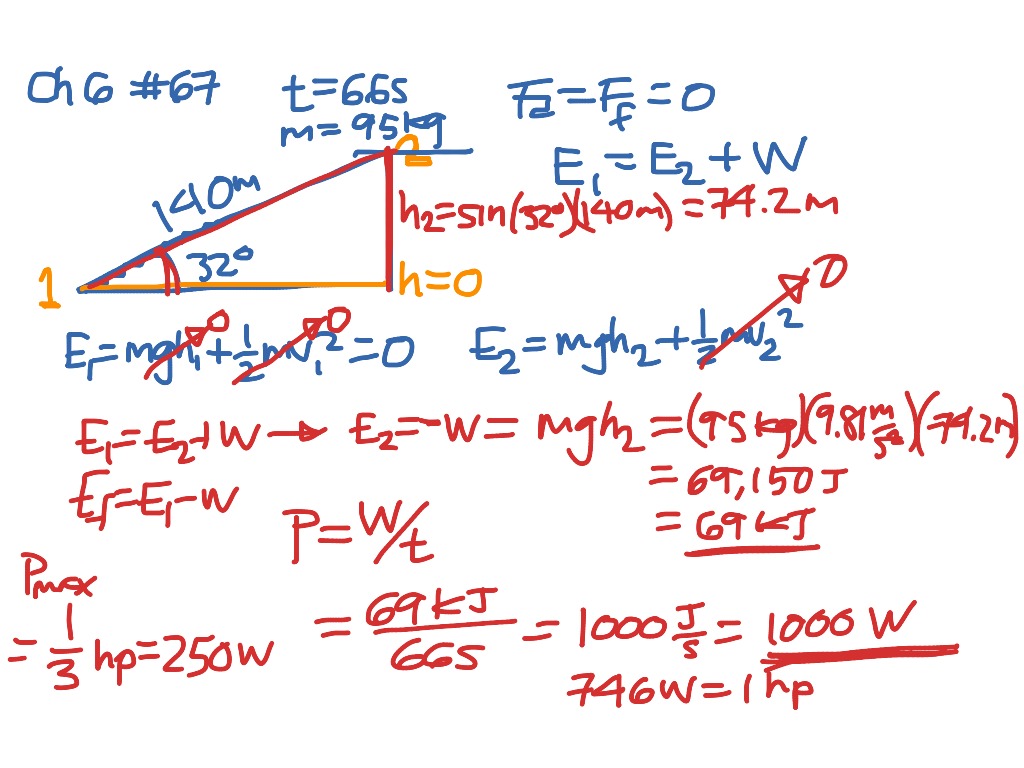 Ch 6 #67
t = 66s
m = 95 kg
F_d = F_f = 0
E₁ = E₂ + W
2
140 m
h₂ = sin(32°)(140 m) = 74.2 m
32°
1
h = 0
E₁ = mgh₁ + ½mv₁² = 0
0
0
E₂ = mgh₂ + ½mv₂²
0
E₁ = E₂ + W → E₂ = -W = mgh₂ = (95 kg)(9.81 m/s²)(74.2 m)
= 69,150 J
= 69 kJ
E_f = E₁ - W
P = W/t
= 69 kJ / 66s = 1000 J/s = 1000 W
746 W = 1 hp
P_max
= 1/3 hp = 250 W